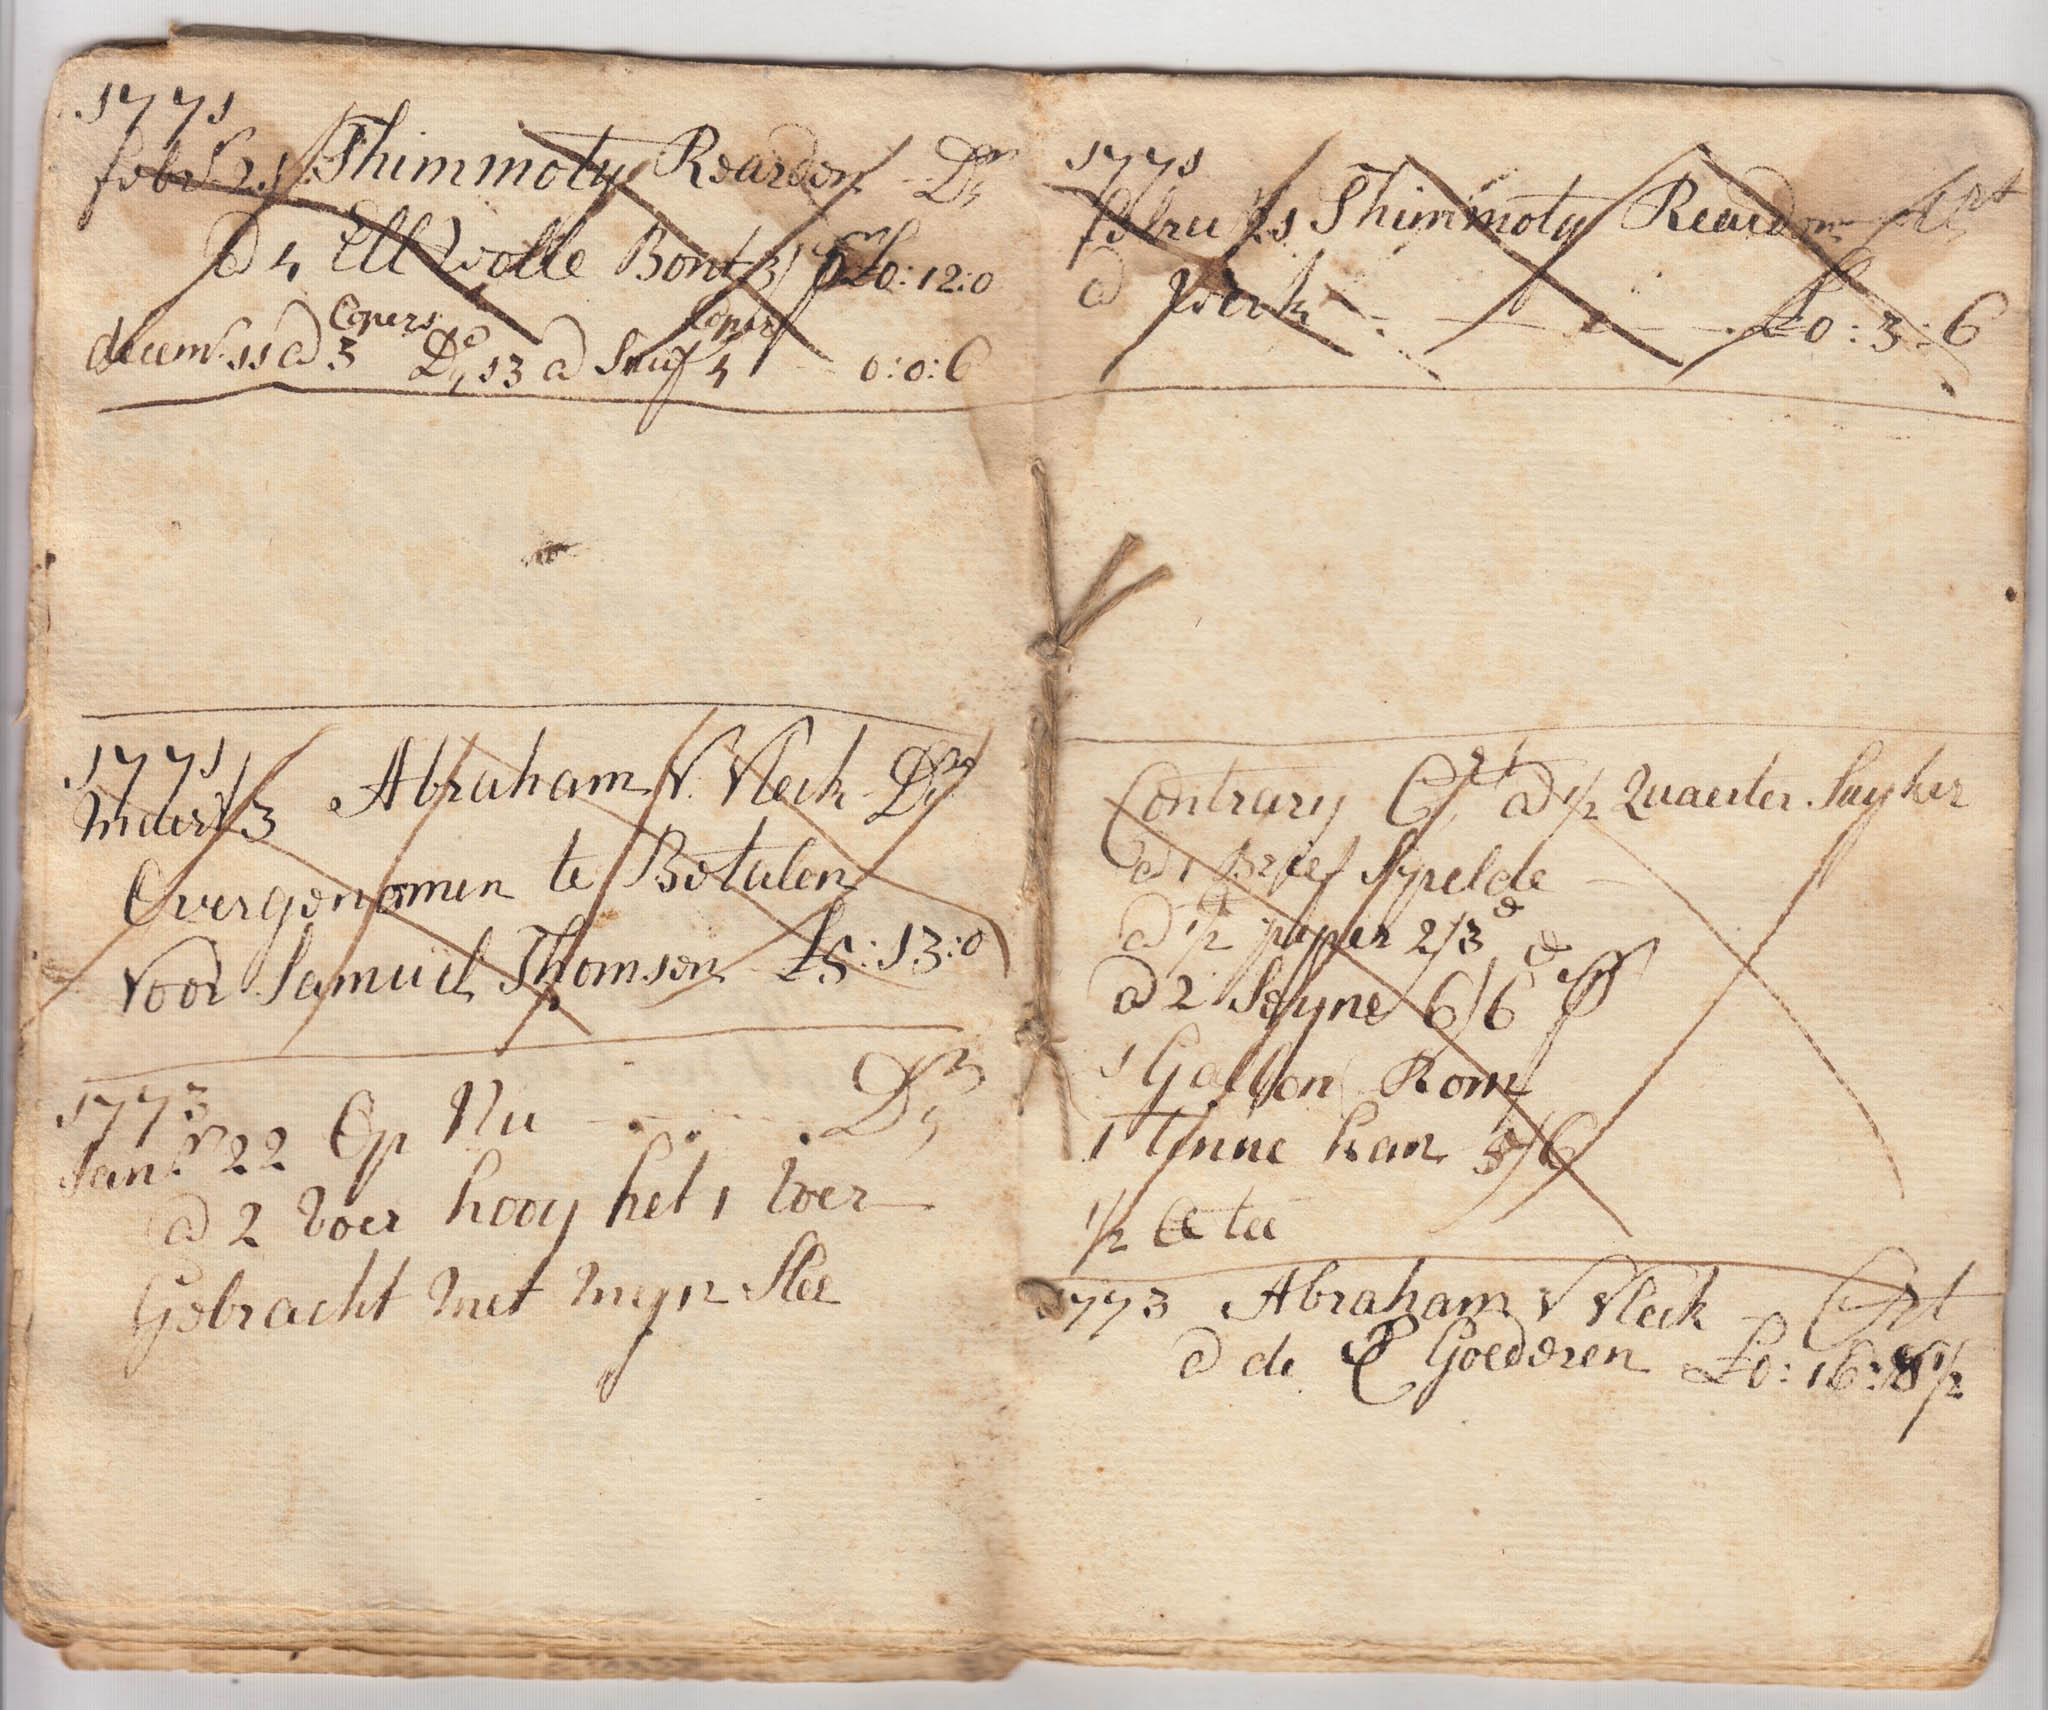 1771
Thimmoty Reardon Dr
a 4 Ell Wolle Bont 3/ £0:12:0
Copers Copers
decemr 11 a 3 Do 13 a Snuf 4 0:0:6
1771
Maert 3 Abraham V Vleck Dr
Overgenomen te Betalen
voor Samuel Thomson £5:13:0
1773
Janr 22 Op Nu Dr
a 2 voer hooy het 1 voer
Gebracht met myn Slee
1771
Thimmoty Reardon Crt
a Werk £0:3:6
Contrary Crt a 1/2 Quaerter Suyker
a 1 Brief Spelde
a 1/2 peper 2/3 d
a 2 Seyne 6/6 d
1 Gallon Rom
1 tinne kan 5/6
1/2 lb tee
1773 Abraham V Vleck Crt
a de Goederen £0:16:8 1/2